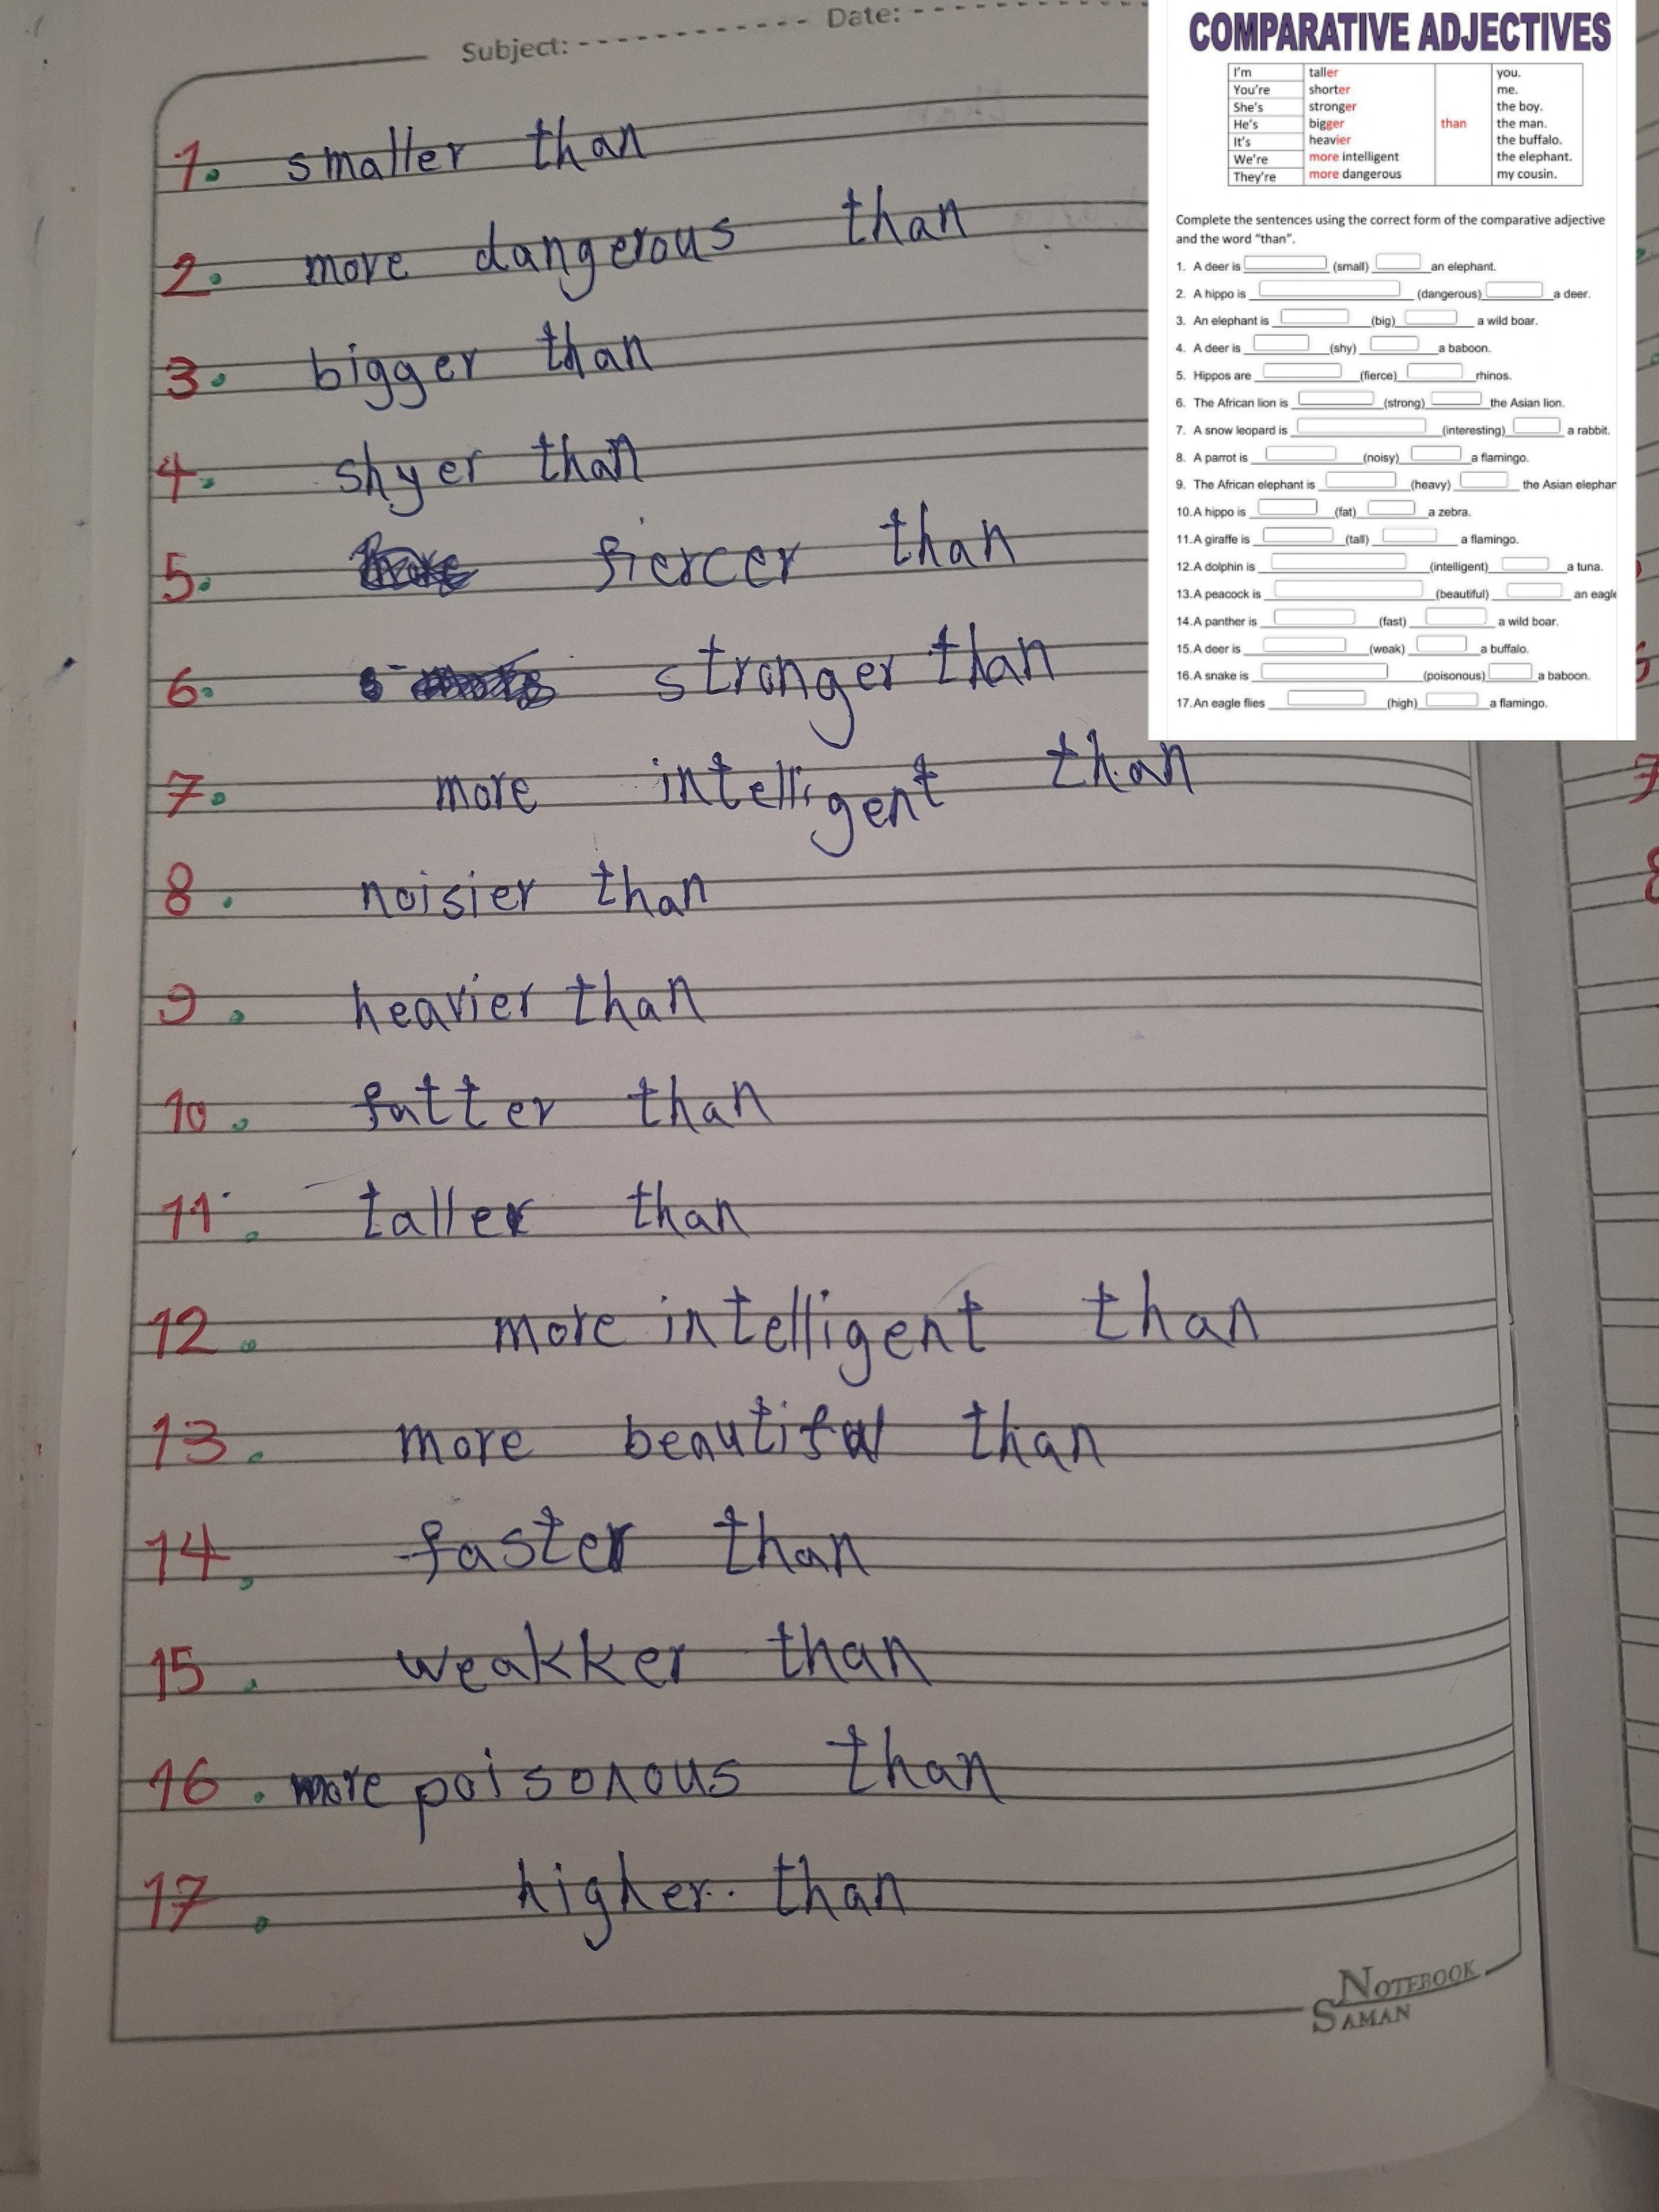 Subject: Date:
1. smaller than
2. more dangerous than
3. bigger than
4. shyer than
5. fiercer than
6. stronger than
7. more intelligent than
8. noisier than
9. heavier than
10. fatter than
11. taller than
12. more intelligent than
13. more beautiful than
14. faster than
15. weakker than
16. more poisonous than
17. higher than
NOTEBOOK
SAMAN
COMPARATIVE ADJECTIVES
I'm taller you.
You're shorter me.
She's stronger the boy.
He's bigger than the man.
It's heavier the buffalo.
We're more intelligent the elephant.
They're more dangerous my cousin.
Complete the sentences using the correct form of the comparative adjective
and the word "than".
1. A deer is (small) an elephant.
2. A hippo is (dangerous) a deer.
3. An elephant is (big) a wild boar.
4. A deer is (shy) a baboon.
5. Hippos are (fierce) rhinos.
6. The African lion is (strong) the Asian lion.
7. A snow leopard is (interesting) a rabbit.
8. A parrot is (noisy) a flamingo.
9. The African elephant is (heavy) the Asian elephan
10. A hippo is (fat) a zebra.
11. A giraffe is (tall) a flamingo.
12. A dolphin is (intelligent) a tuna.
13. A peacock is (beautiful) an eagle
14. A panther is (fast) a wild boar.
15. A deer is (weak) a buffalo.
16. A snake is (poisonous) a baboon.
17. An eagle flies (high) a flamingo.